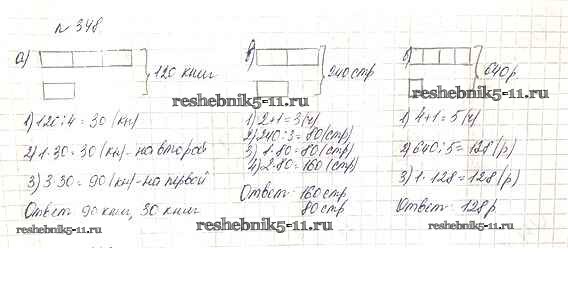 № 348.
а) 120 книг
1) 120 : 4 = 30 (кн)
2) 1·30 = 30 (кн) - на второй
3) 3·30 = 90 (кн) - на первой
Ответ 90 книг, 30 книг
reshebnik5-11.ru
240 стр
reshebnik5-11.ru
1) 2+1 = 3 (ч)
2) 240 : 3 = 80 (стр)
3) 1·80 = 80 (стр)
4) 2·80 = 160 (стр)
Ответ 160 стр
80 стр
reshebnik5-11.ru
640 р.
reshebnik5-11.ru
1) 4+1 = 5 (ч)
2) 640 : 5 = 128 (р)
3) 1·128 = 128 (р)
Ответ: 128 р.
reshebnik5-11.ru